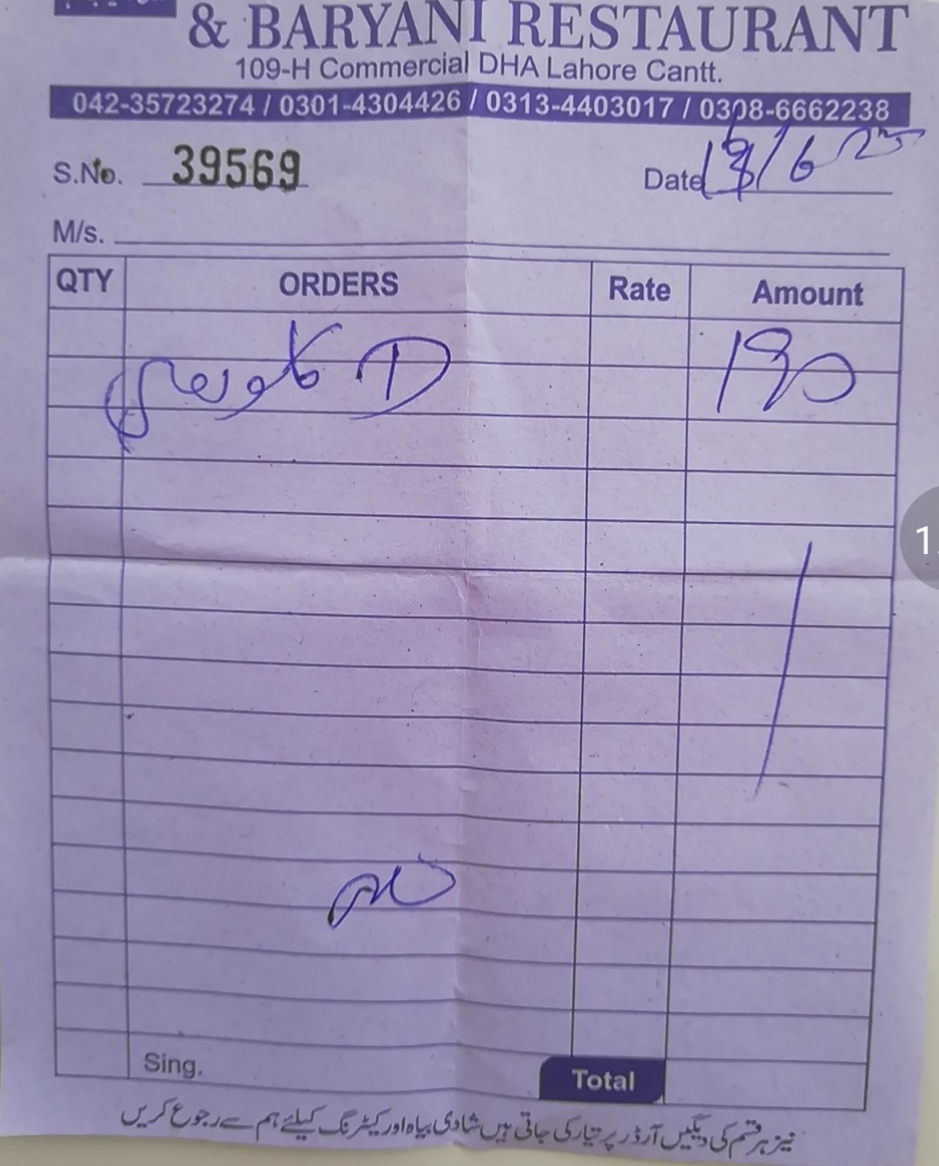 & BARYANI RESTAURANT
109-H Commercial DHA Lahore Cantt.
042-35723274 / 0301-4304426 / 0313-4403017 / 0308-6662238
S.No. 39569
Date 18/6 25
M/s.
QTY ORDERS Rate Amount
D 190
Sing.
Total
نیز ہر قسم کی دیگیں آرڈر پر تیار کی جاتی ہیں شادی بیاہ اور کیٹرنگ کیلئے ہم سے رجوع کریں
1